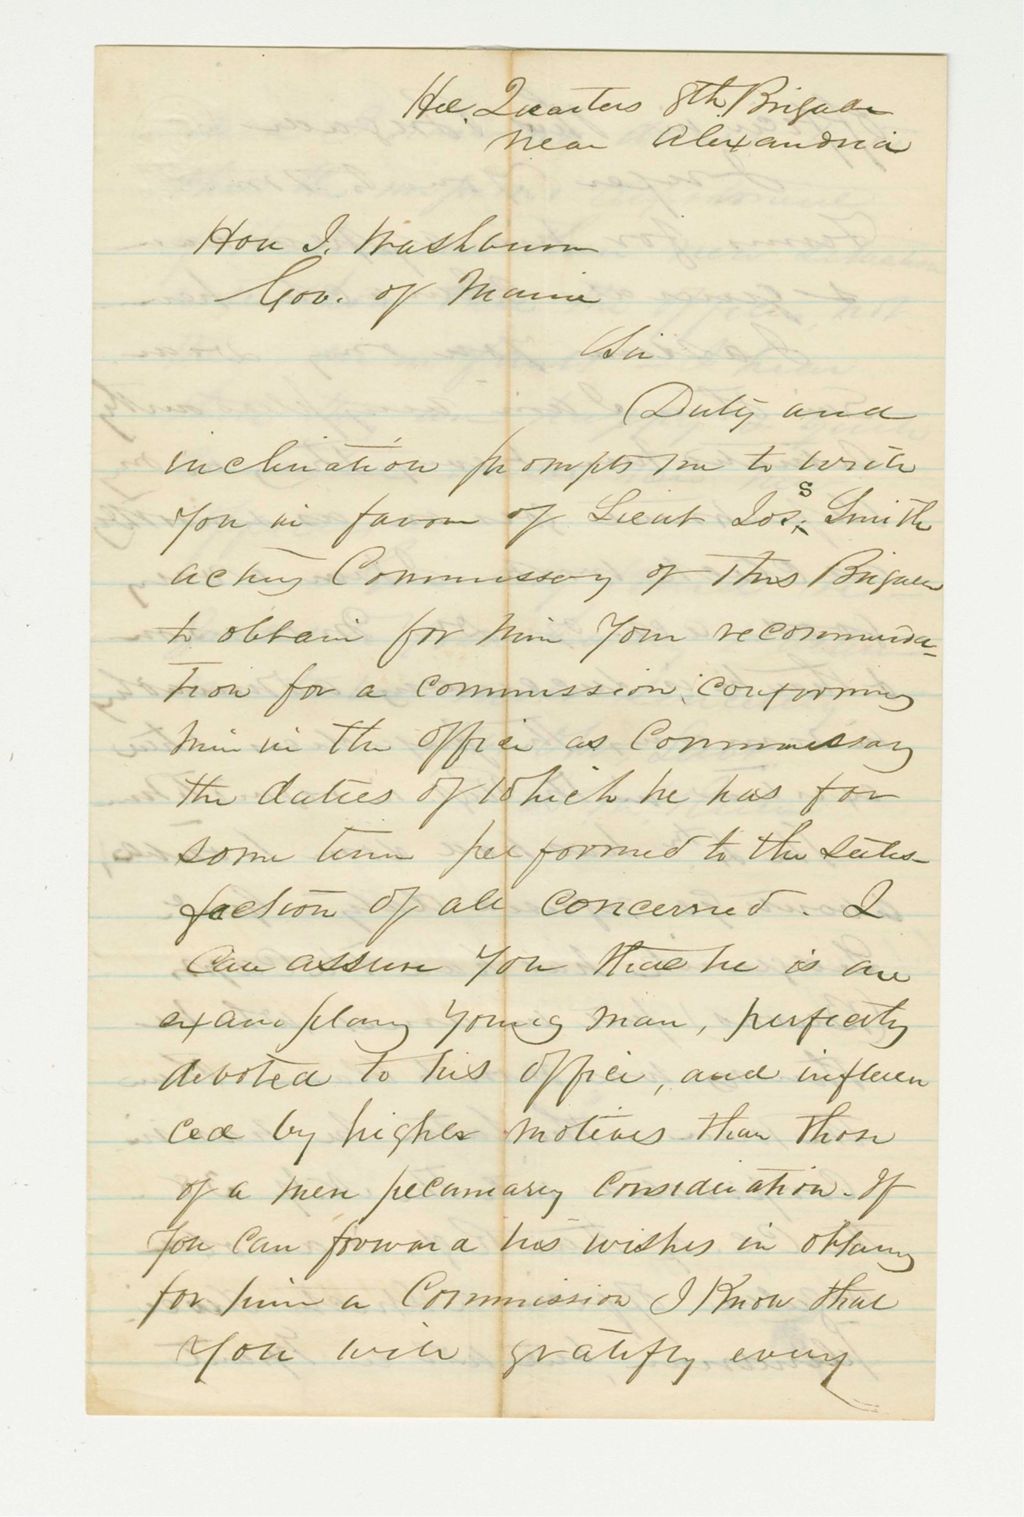 Hd. Quarters 8th Brigade
near Alexandria
Hon I. Washburn
Gov. of Maine
Sir
Duty and
inclination prompts me to write
you in favor of Lieut Jos. S Smith
acting Commissary of this Brigade
to obtain for him your recommenda-
tion for a commission, conforming
him in the office as Commissary
the duties of which he has for
some time performed to the satis-
faction of all concerned. I
can assure you that he is an
examplary young man, perfectly
devoted to his office, and influen
ced by higher motives than those
of a mere pecuniary consideration. If
you can forward his wishes in obtaing
for him a Commission I know that
you will gratify every